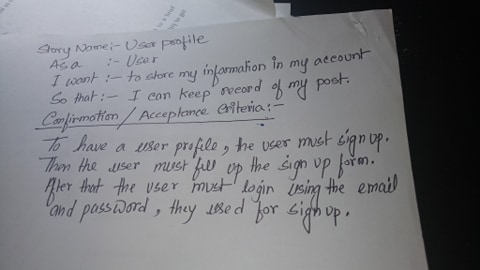 Story Name:- User profile
As a :- User
I want :- to store my information in my account
So that :- I can keep record of my post.
Confirmation / Acceptance Criteria:-
To have a user profile, the user must sign up.
Then the user must fill up the sign up form.
After that the user must login using the email
and password, they used for sign up.